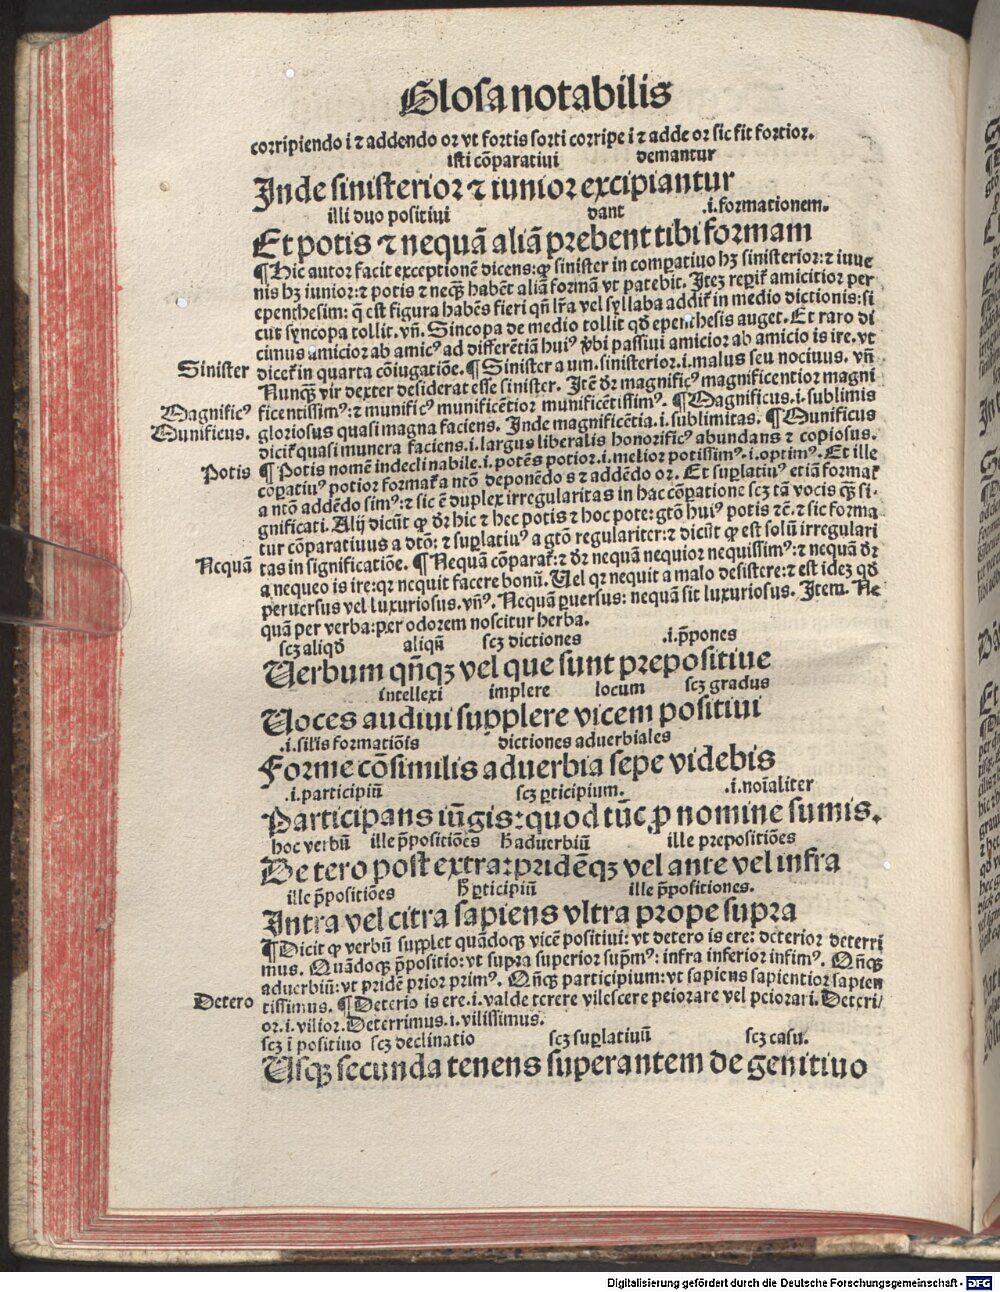 Glosa notabilis
corripiendo i ⁊ addendo or vt fortis forti corripe i ⁊ adde or sic fit fortior.
isti cõparatiui demantur
Inde sinisterior ⁊ iunior excipiantur
illi duo positiui dant .i.formationem.
Et potis ⁊ nequã aliã prebent tibi formam
¶ Hic autor facit exceptionẽ dicens: ꝙ sinister in comparatiuo hꝫ sinisterior: ⁊ iuue
nis hꝫ iunior: ⁊ potis ⁊ neqꝫ̃ habẽt aliã formã vt patebit. Itez reperit̃ amicitior per
epenthesim: q̃ est figura habẽs fieri qñ lr̃a vel syllaba addit̃ in medio dictionis: si
cut syncopa tollit. vñ. Sincopa de medio tollit qđ epenthesis auget. Et raro di
cimus amicior ab amicꝰ ad differẽtiã huiꝰ ṽbi passiui amicior ab amicio is ire. vt
Sinister dicet̃ in quarta cõiugatiõe. ¶ Sinister a um. sinisterior .i. malus seu nociuus. vñ
Nunqꝫ̃ vir dexter desiderat esse sinister. Itẽ dr̃ magnificꝰ magnificentior magni
Magnificꝰ ficentissimꝰ: ⁊ munificꝰ munificẽtior munificẽtissimꝰ. ¶ Magnificus .i. sublimis
Munificus. gloriosus quasi magna faciens. Inde magnificẽtia .i. sublimitas. ¶ Munificus
dicit̃ quasi munera faciens .i. largus liberalis honorificꝰ abundans ⁊ copiosus.
Potis ¶ Potis nomẽ indeclinabile .i. potẽs potior .i. melior potissimꝰ .i. optimꝰ. Et ille
cõpatiuꝰ potior format̃ a ntõ deponẽdo s ⁊ addẽdo or. Et suplatiuꝰ etiã format̃
a ntõ addẽdo simꝰ: ⁊ sic ẽ duplex irregularitas in hac cõparatione scꝫ tã vocis qꝫ̃ si-
gnificati. Alij dicũt ꝙ dr̃ hic ⁊ hec potis ⁊ hoc pote: gtõ huiꝰ potis ⁊c̃. ⁊ sic forma
tur cõparatiuus a dtõ: ⁊ suplatiuꝰ a gtõ regulariter: ⁊ dicũt ꝙ est solũ irregulari
Nequã tas in significatiõe. ¶ Nequã cõparat̃: ⁊ dr̃ nequã nequior nequissimꝰ: ⁊ nequã dr̃
a nequeo is ire: qr nequit facere bonũ. Uel qr nequit a malo desistere: ⁊ est idez qđ
peruersus vel luxuriosus. vñꝰ. Nequã puersus: nequã sit luxuriosus. Item. Ne
quã per verba: per odorem noscitur herba.
scꝫ aliqđ aliqñ scꝫ dictiones .i. p̃pones
Uerbum qñqꝫ vel que sunt prepositiue
intellexi implere locum scꝫ gradus
Uoces audiui supplere vicem positiui
.i. silis formatiõis dictiones aduerbiales
Forme cõsimilis aduerbia sepe videbis
.i. participiũ scꝫ pticipium. .i. noĩaliter
Participans iũgis: quod tũc ꝓ nomine sumis.
hoc verbũ ille p̃positiões h̃ aduerbiũ ille prepositiões
De tero post extra: pridẽqꝫ vel ante vel infra
ille p̃positiões h̃ pticipiũ ille p̃positiones.
Intra vel citra sapiens vltra prope supra
¶ Dicit ꝙ verbũ supplet quãdoqꝫ vicẽ positiui: vt detero is ere: deterior deterri
mus. Quãdoqꝫ p̃positio: vt supra superior sup̃mꝰ: infra inferior infimꝰ. Qñqꝫ
aduerbiũ: vt pridẽ prior primꝰ. Qñqꝫ participium: vt sapiens sapientior sapien
Detero tissimus. ¶ Deterio is ere .i. valde terere vilescere peiorare vel peiorari. Deteri/
or .i. vilior. Deterrimus .i. vilissimus.
scꝫ ĩ positiuo scꝫ declinatio scꝫ suplatiuũ scꝫ casu.
Usqꝫ secunda tenens superantem de genitiuo
Digitalisierung gefördert durch die Deutsche Forschungsgemeinschaft - DFG